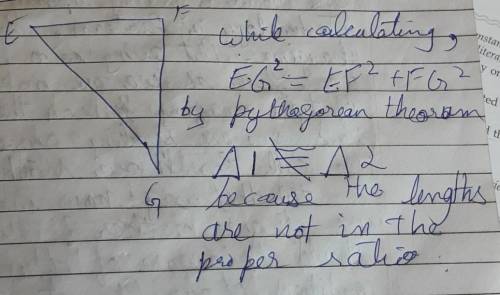 E F
while calculating,
EG² = EF² + FG²
by pythagorean theorem
Δ1 ≢ Δ2
G because the lengths
are not in the
proper ratio.